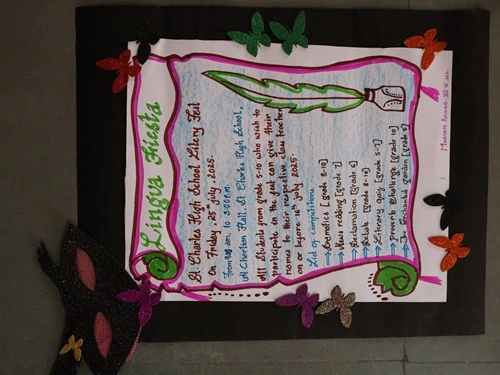 Lingua Fiesta
St. Charles High School Litery Fest
On Friday 25th july 2025.
From 9 am to 3:00 P.m.
At Cherubon Hall, St Charles High School.
All Students from grade 5-10 who wish to
participate in the fest can give their
names to their respective class teachers
on or before 16th july 2025
List of competitions
→ Dramatics [grade 8-10]
→ News reading [grade 7]
→ Declamation [grade 6]
→ Debate [grade 8-10]
→ Literary quiz [grade 5-7]
→ Proverb challenge [grade 10]
→ The Enchanted garden [grade 5]